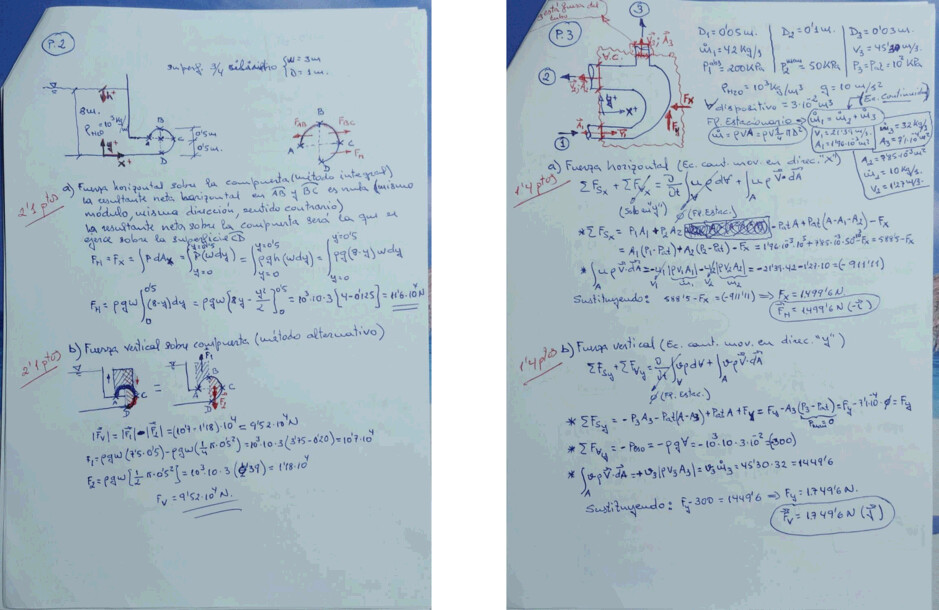 P.2
superf. 3/4 cilindro { W = 3m
D = 1m.
8m.
h
ρH2O = 10³ kg/m³
y
x
A
B
C
D
0'5m
0'5m.
B
FAB
FBC
A
C
D
FH
2'1 ptos
a) Fuerza horizontal sobre la compuerta (método integral)
La resultante neta horizontal en AB y BC es nula (mismo
módulo, misma dirección, sentido contrario)
La resultante neta sobre la compuerta será la que se
ejerce sobre la superficie CD
FH = Fx = ∫ P dAx = ∫ P(wdy) = ∫ ρgh(wdy) = ∫ ρg(8-y)wdy
y=0'5
y=0
FH = ρgw ∫ (8-y)dy = ρgw [8y - y²/2] = 10³·10·3 [4-0'125] = 11'6·10⁴ N
2'1 ptos
b) Fuerza vertical sobre compuerta (método alternativo)
|FV| = |F1| - |F2| = (10'7 - 1'18)·10⁴ = 9'52·10⁴ N
F1 = ρgw(7'5·0'5) - ρgw(1/4 π·0'5²) = 10³·10·3 (3'75 - 0'20) = 10'7·10⁴
F2 = ρgw [1/2 π·0'5²] = 10³·10·3 (0'39) = 1'18·10⁴
FV = 9'52·10⁴ N.
P.3
está fuera del
tubo
3
V.C.
2
1
Fx
Fy
D1 = 0'05 m. D2 = 0'1 m. D3 = 0'03 m.
ṁ1 = 42 kg/s V3 = 45'30 m/s
P1 = 200 KPa P2 = 50 KPa P3 = Pat = 10² KPa
ρH2O = 10³ kg/m³ g = 10 m/s²
∀dispositivo = 3·10⁻² m³
(Ec. Continuidad)
Fl. Estacionario → ṁ1 = ṁ2 + ṁ3
V1 = 21'39 m/s
A1 = 1'96·10⁻³ m²
ṁ3 = 32 kg/s
A3 = 7'1·10⁻⁴ m²
A2 = 7'85·10⁻³ m²
ṁ2 = 10 kg/s.
V2 = 1'27 m/s.
1'4 ptos
a) Fuerza horizontal (Ec. cant. mov. en direc. "x")
ΣFSx + ΣFVx = ∂/∂t ∫ u ρ dV + ∫ u ρ V·dA
(Solo "y") (Fl. Estac.)
* ΣFSx = P1A1 + P2A2 - PatA + Pat(A-A1-A2) - Fx
= A1(P1-Pat) + A2(P2-Pat) - Fx = 1'96·10⁻³·10⁵ + 7'85·10⁻³·50³ - Fx = 588'5 - Fx
Sustituyendo: 588'5 - Fx = (-911'11) ⇒ Fx = 1.499'6 N
FH = 1.499'6 N (-i)
1'4 ptos
b) Fuerza vertical (Ec. cant. mov. en direc. "y")
ΣFSy + ΣFVy = ∂/∂t ∫ v ρ dV + ∫ v ρ V·dA
(Fl. Estac.)
* ΣFSy = - P3A3 - Pat(A-A3) + Pat A + Fy = Fy - A3(P3-Pat) = Fy - 7'1·10⁻⁴·0 = Fy
* ΣFVy = - Peso = - ρg∀ = -10³·10·3·10⁻² = (-300)
* ∫ v ρ V·dA = + v3 |ρ V3 A3| = v3 ṁ3 = 45'30·32 = 1449'6
Sustituyendo: Fy - 300 = 1449'6 ⇒ Fy = 1.749'6 N.
FV = 1.749'6 N (j)